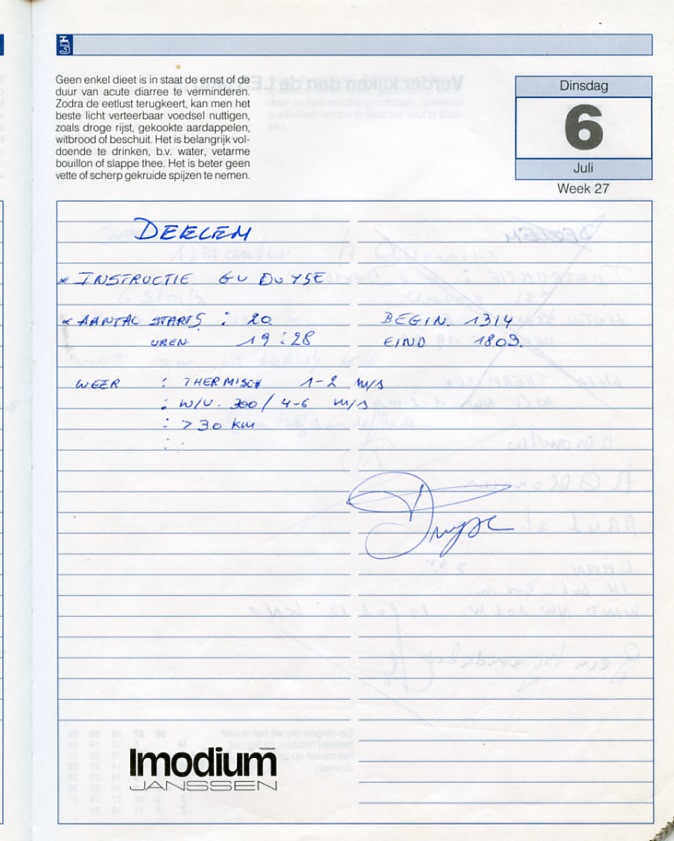 Geen enkel dieet is in staat de ernst of de
duur van acute diarree te verminderen.
Zodra de eetlust terugkeert, kan men het
beste licht verteerbaar voedsel nuttigen,
zoals droge rijst, gekookte aardappelen,
witbrood of beschuit. Het is belangrijk vol-
doende te drinken, b.v. water, vetarme
bouillon of slappe thee. Het is beter geen
vette of scherp gekruide spijzen te nemen.
Dinsdag
6
Juli
Week 27
DEELEN
* INSTRUCTIE GV DUYSE
* AANTAL STARTS : 20 BEGIN. 1314
UREN 19:28 EIND 1803.
WEER : THERMISCH 1-2 M/S
: W/V. 300/ 4-6 M/S
: >30 km
Duyse
Imodium
JANSSEN